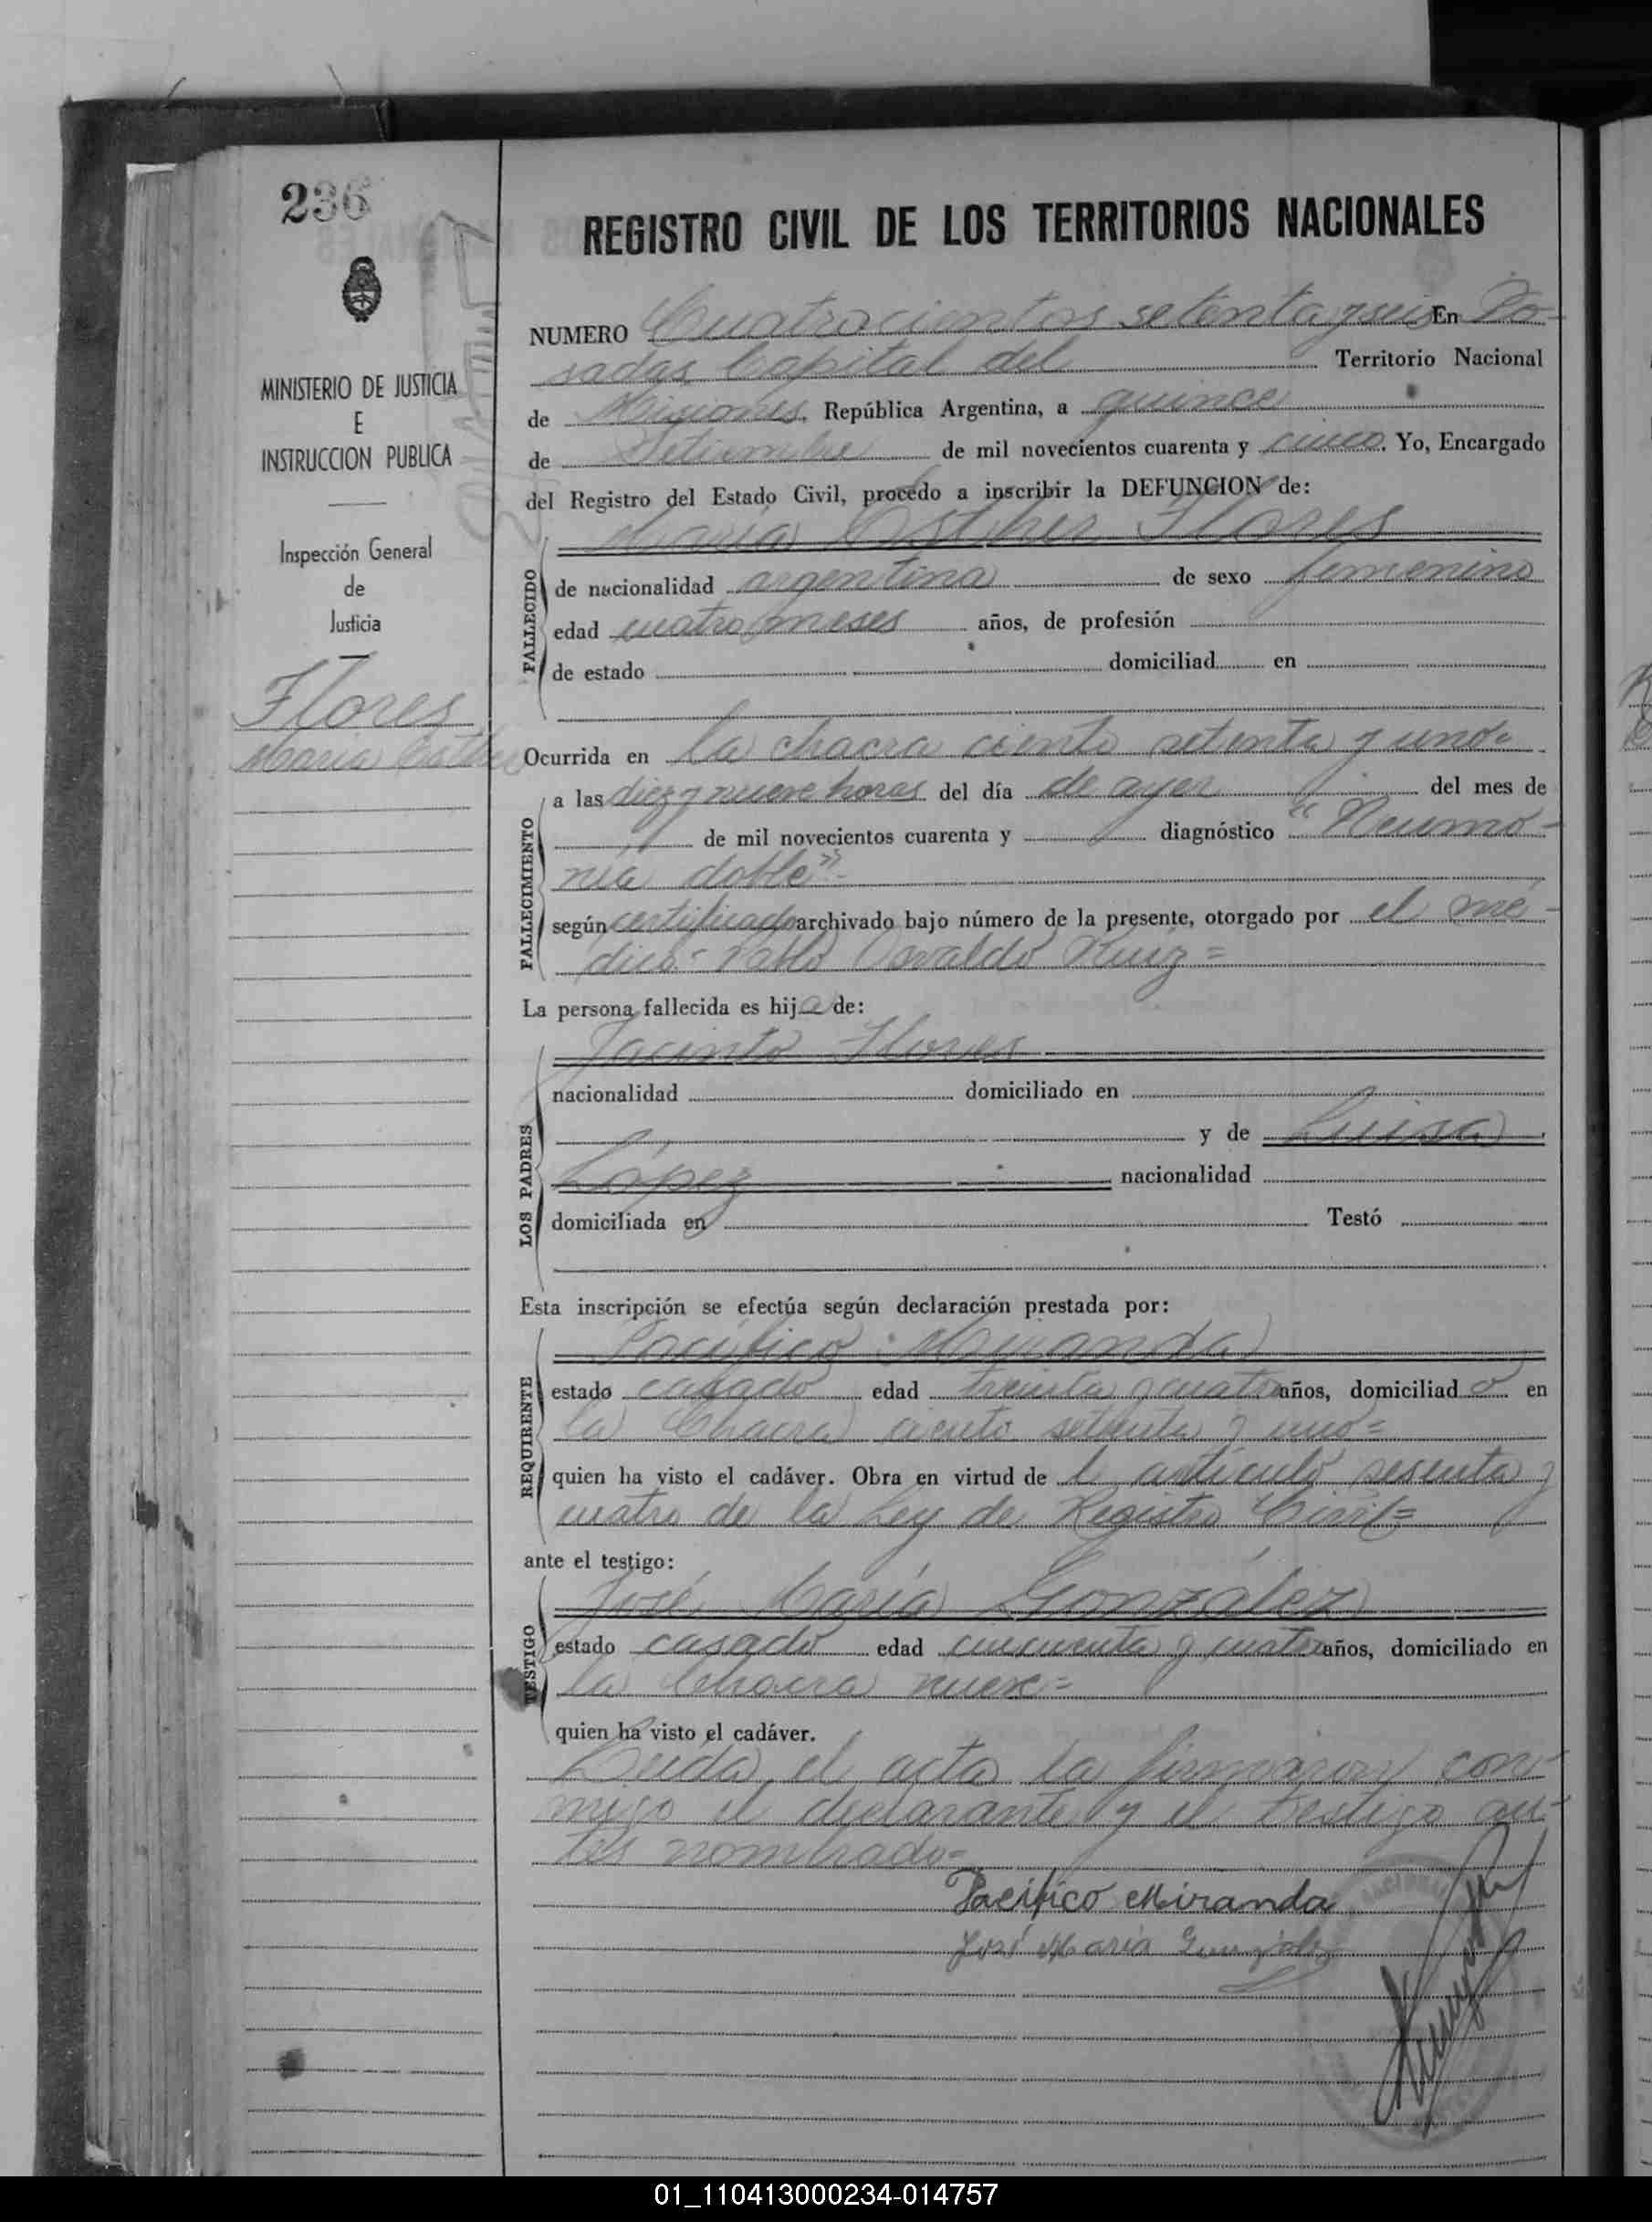 236
MINISTERIO DE JUSTICIA
E
INSTRUCCION PUBLICA
Inspección General
de
Justicia
Flores
Maria Esther
REGISTRO CIVIL DE LOS TERRITORIOS NACIONALES
NUMERO Cuatrocientos setenta y seis En Po-
sadas Capital del Territorio Nacional
de Misiones, República Argentina, a quince
de Setiembre de mil novecientos cuarenta y cinco. Yo, Encargado
del Registro del Estado Civil, procedo a inscribir la DEFUNCION de:
María Esther Flores
FALLECIDO
de nacionalidad argentina de sexo femenino
edad cuatro meses años, de profesión
de estado domiciliad en
Ocurrida en la chacra ciento setenta y uno=
FALLECIMIENTO
a las diez y nueve horas del día de ayer del mes de
de mil novecientos cuarenta y diagnóstico "Neumo-
nía doble".
según certificado archivado bajo número de la presente, otorgado por el mé-
dico: Pablo Osvaldo Ruiz=
La persona fallecida es hija de:
Jacinto Flores
LOS PADRES
nacionalidad domiciliado en
y de Luisa
López nacionalidad
domiciliada en Testó
Esta inscripción se efectúa según declaración prestada por:
Pacífico Miranda
REQUIRENTE
estado casado edad treinta y cuatro años, domiciliado en
la Chacra ciento setenta y uno=
quien ha visto el cadáver. Obra en virtud del artículo sesenta y
cuatro de la Ley de Registro Civil=
ante el testigo:
José María González
TESTIGO
estado casado edad cincuenta y cuatro años, domiciliado en
la Chacra nueve=
quien ha visto el cadáver.
Leida el acta la firmaron con-
migo el declarante y el testigo an-
tes nombrado=
Pacifico Miranda
José Maria Gonzalez
01_110413000234-014757